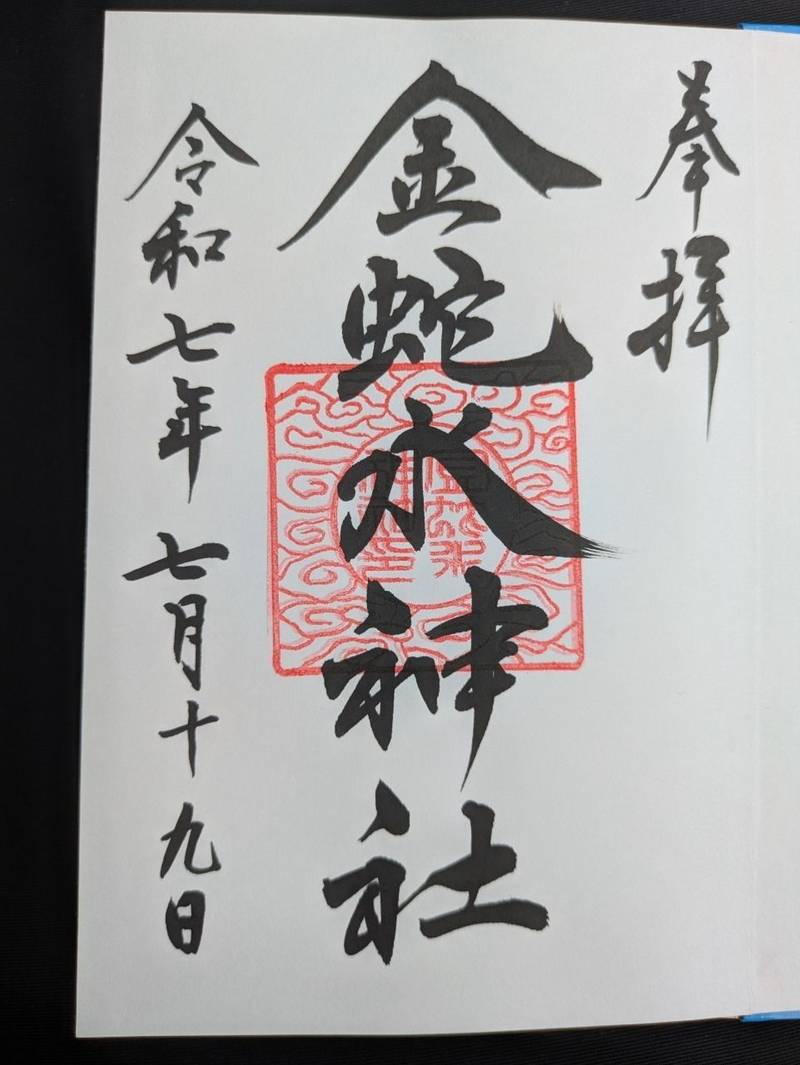 奉拝
金蛇水神社
令和七年七月十九日